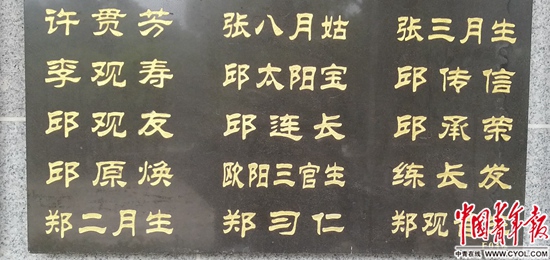 许贯芳 张八月姑 张三月生
李观寿 邱太阳宝 邱传信
邱观友 邱连长 邱承荣
邱原焕 欧阳三官生 练长发
郑二月生 郑习仁 郑观
中国青年报
中青在线 WWW.CYOL.COM